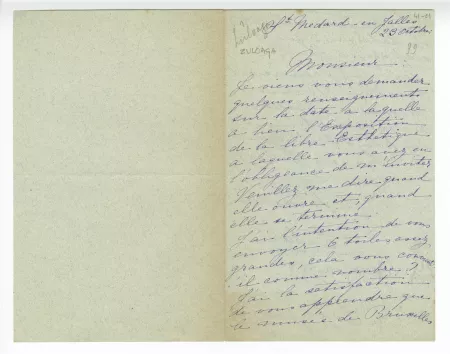 Zuloaga
ZULOAGA
St. Medard-en-Jalles
23 octobre
99
Monsieur
Je viens vous demander
quelques renseignements
sur la date a laquelle
a lieu l'Exposition
de la libre Esthétique
a laquelle vous avez eu
l'obligeance de m'inviter
Veuillez me dire quand
elle ouvre et, quand
elle se termine.
J'ai l'intention de vous
envoyer 6 toiles assez
grandes, cela vous convient
il comme nombre?
J'ai la satisfaction
de vous apprendre que
le musée de Bruxelles